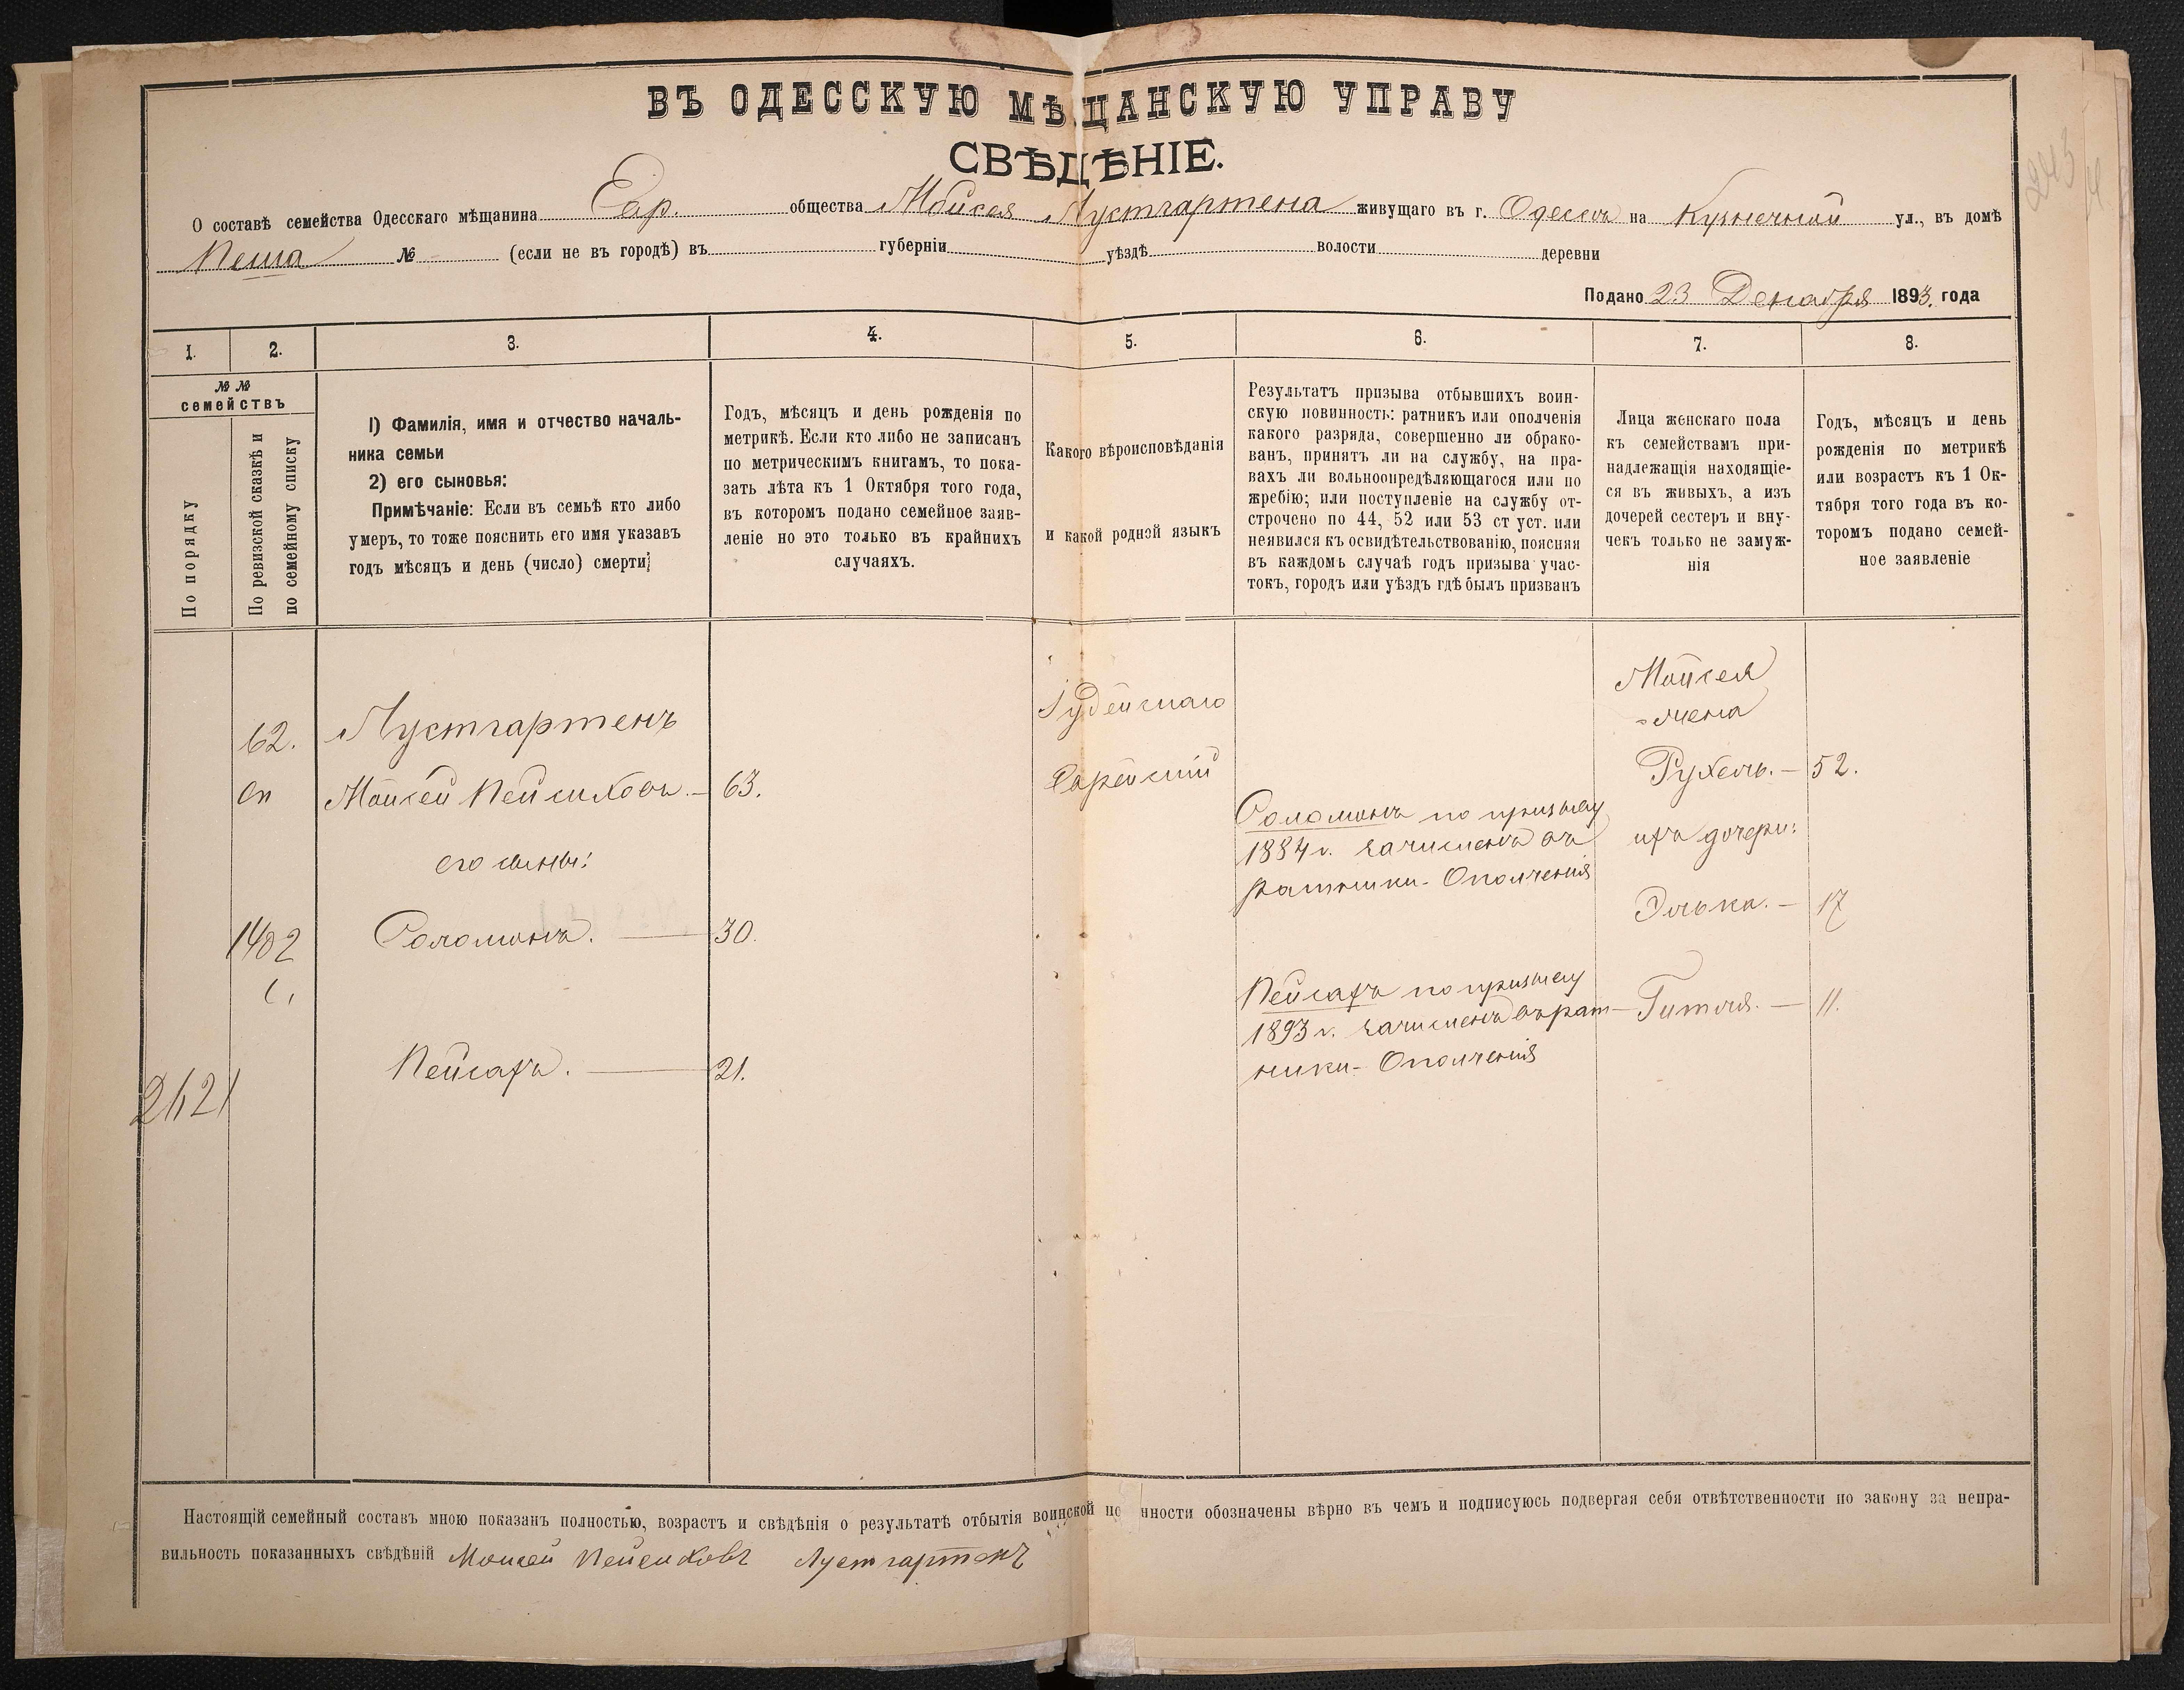 ВЪ ОДЕССКУЮ МѢЩАНСКУЮ УПРАВУ
СВѢДѢНІЕ.
О составѣ семейства Одесскаго мѣщанина Евр. общества Мойсея Лустгартена живущаго въ г. Одессѣ на Кузнечной ул., въ домѣ
№ (если не въ городѣ) въ губерніи уѣздѣ волости деревни
Подано 23 Декабря 1893. года
1. 2. 3. 4. 5. 6. 7. 8.
№№
семействъ
По порядку
По ревизской сказкѣ и
по семейному списку
1) Фамилія, имя и отчество началь-
ника семьи
2) его сыновья:
Примѣчаніе: Если въ семьѣ кто либо
умеръ, то тоже пояснить его имя указавъ
годъ мѣсяцъ и день (число) смерти;
Годъ, мѣсяцъ и день рожденія по
метрикѣ. Если кто либо не записанъ
по метрическимъ книгамъ, то пока-
зать лѣта къ 1 Октября того года,
въ которомъ подано семейное заяв-
леніе но это только въ крайнихъ
случаяхъ.
Какого вѣроисповѣданія
и какой родной языкъ
Результатъ призыва отбывшихъ воин-
скую повинность: ратникъ или ополченія
какого разряда, совершенно ли обрако-
ванъ, принятъ ли на службу, на пра-
вахъ ли вольноопредѣляющагося или по
жребію; или поступленіе на службу от-
строчено по 44, 52 или 53 ст уст. или
неявился къ освидѣтельствованію, поясняя
въ каждомъ случаѣ годъ призыва учас-
токъ, городъ или уѣздъ гдѣ былъ призванъ
Лица женскаго пола
къ семействамъ при-
надлежащія находящіе-
ся въ живыхъ, а изъ
дочерей сестеръ и вну-
чекъ только не замуж-
нія
Годъ, мѣсяцъ и день
рожденія по метрикѣ
или возрастъ къ 1 Ок-
тября того года въ ко-
торомъ подано семей-
ное заявленіе
62.
сп
1402
2621
Лустгартенъ
Мойсей Пейсиховъ. — 63.
его сыны:
Соломонъ. — 30.
Пейсахъ. — 21.
Іудейскаго
Еврейскій
Соломонъ по призыву
1884 г. зачисленъ въ
ратники Ополченія
Пейсахъ по призыву
1893 г. зачисленъ въ рат-
ники Ополченія
Мойсея
жена
Рухель. — 52.
ихъ дочери:
Элька. — 17
Гитля. — 11.
Настоящій семейный составъ мною показанъ полностью, возрастъ и свѣдѣнія о результатѣ отбытія воинской по нности обозначены вѣрно въ чемъ и подписуюсь подвергая себя отвѣтственности по закону за непра-
вильность показанныхъ свѣдѣній Моисей Пейсиховъ Лустгартенъ